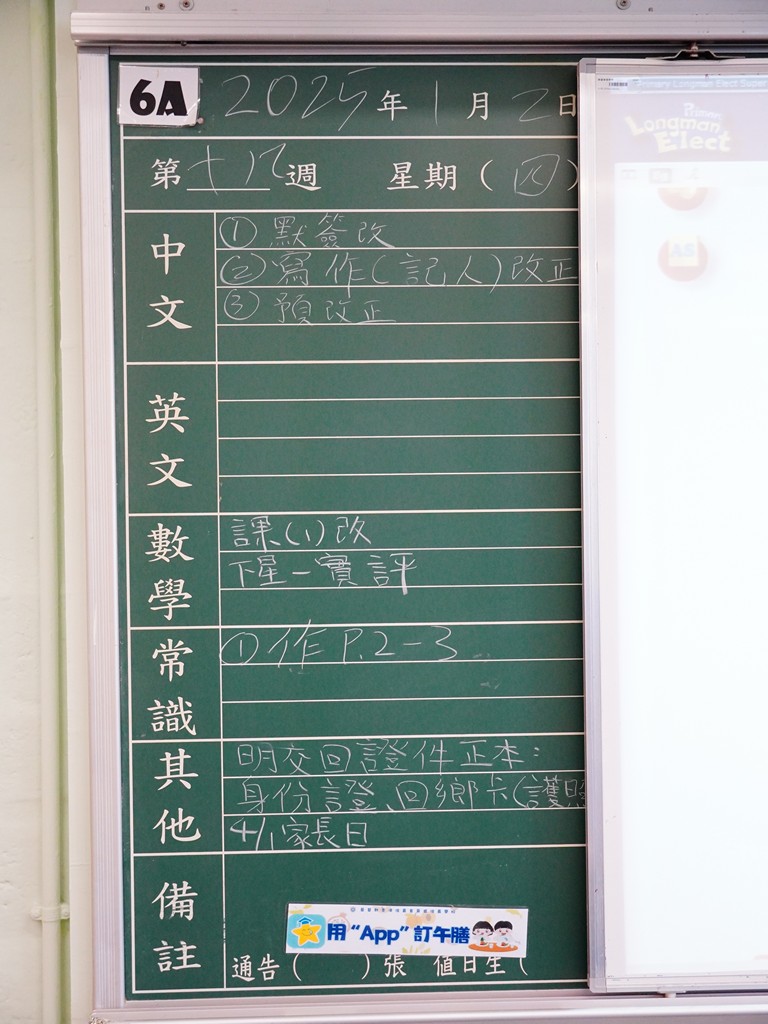 6A 2025年1月2日
第十八週 星期(四)
中文
① 默簽改
② 寫作(記人)改正
③ 預改正
英文
數學
課(1)改
下星一實評
常識
① 作 P.2-3
其他
明交回證件正本：
身份證、回鄉卡(護照
4/1家長日
備註
用“App”訂午膳
通告( )張 值日生(
Primary Longman Elect